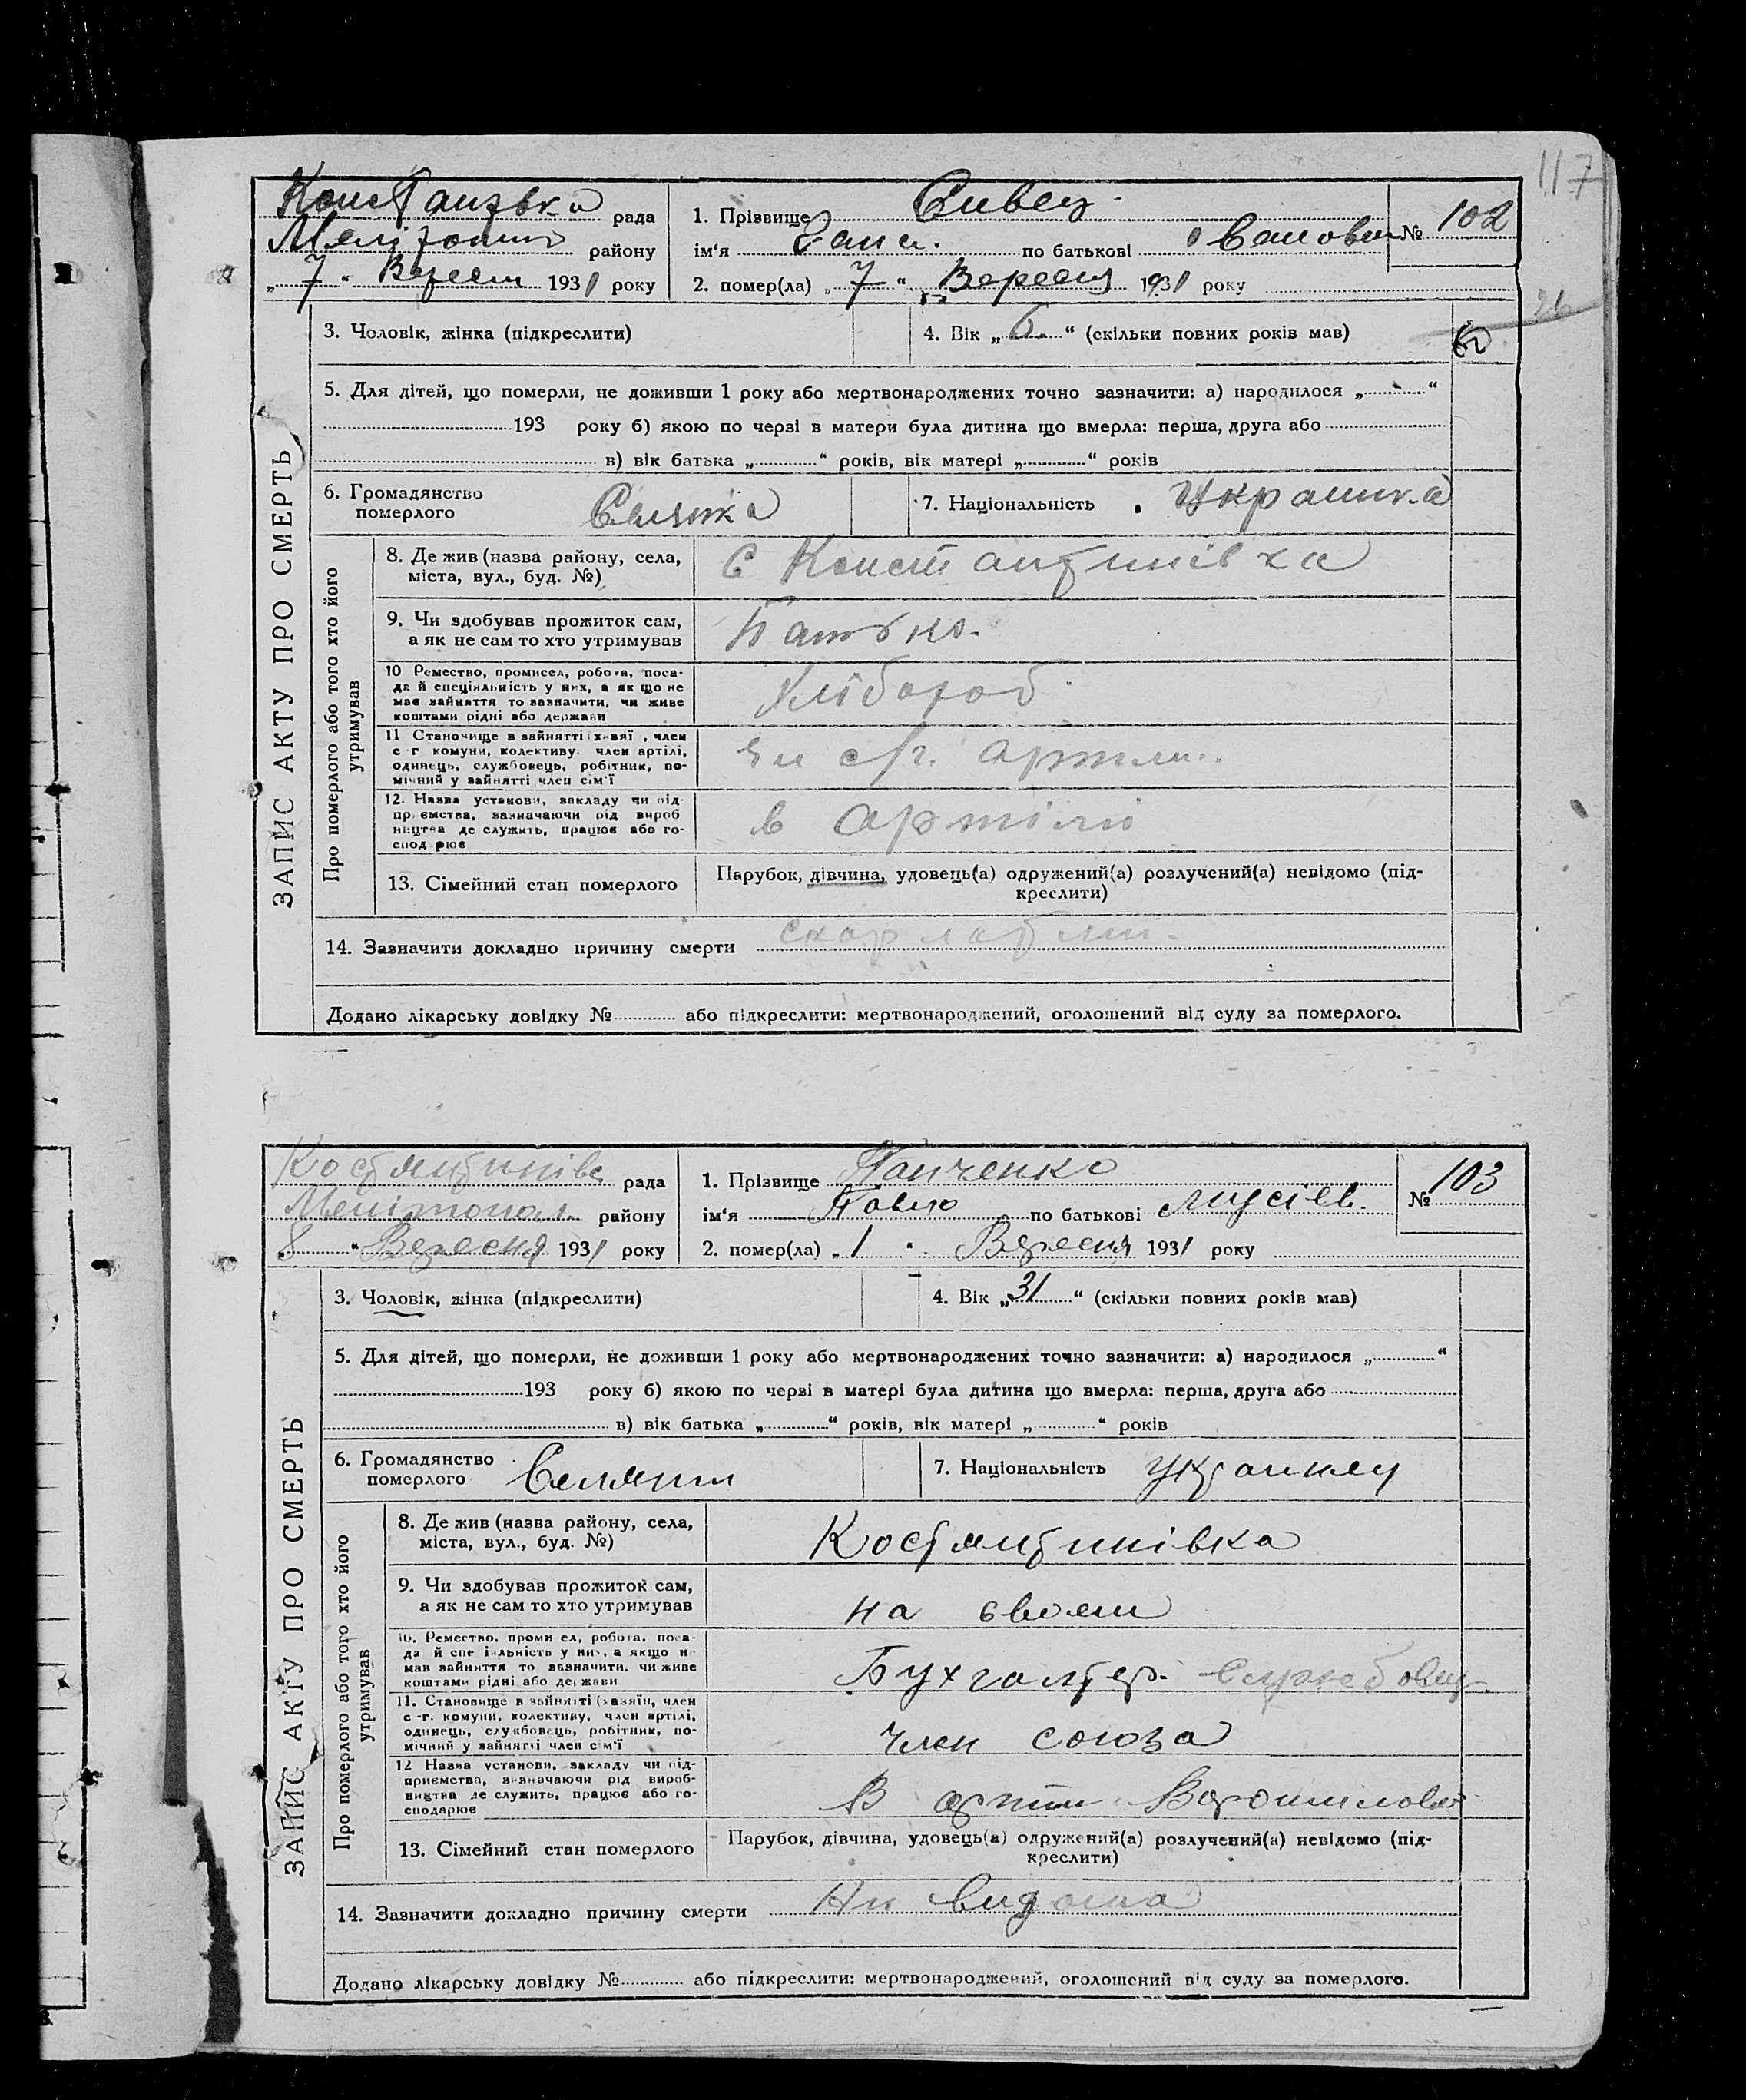 117
рада
району
„ 7 “ 1931 року
1. Прізвище Сивец
ім‘я по батькові
2. помер(ла) „ 7 “ 1931 року
№ 102
26
ЗАПИС АКТУ ПРО СМЕРТЬ
3. Чоловік, жінка (підкреслити)
4. Вік „ 6 “ (скільки повних років мав)
5. Для дітей, що померли, не доживши 1 року або мертвонароджених точно зазначити: а) народилося „ “
193 року б) якою по черзі в матери була дитина що вмерла: перша, друга або
в) вік батька „ “ років, вік матері „ “ років
6. Громадянство
померлого
7. Національність
Про померлого або того хто його
утримував
8. Де жив (назва району, села,
міста, вул., буд. №)
с Константинівка
9. Чи здобував прожиток сам,
а як не сам то хто утримував
Батько.
10 Ремество, промисел, робота, поса-
да й спеціяльність у них, а як що не
мав зайняття то зазначити, чи живе
коштами рідні або держави
Хлібороб
11 Становище в зайнятті (хазяї , член
с -г комуни, колективу, член артілі,
одинець, службовець, робітник, по-
мічний у зайнятті член сім‘ї
чл с/г. артили.
12. Назва установи, закладу чи під-
приємства, зазначаючи рід вироб
ництва де служить, працює або го-
сподарює
в артілі
13. Сімейний стан померлого
Парубок, дівчина, удовець(а) одружений(а) розлучений(а) невідомо (під-
креслити)
14. Зазначити докладно причину смерти
Додано лікарську довідку № або підкреслити: мертвонароджений, оголошений від суду за померлого.
рада
району
„ 8 “ Вересня 1931 року
1. Прізвище Панченко
ім‘я Павло по батькові Мусіев.
2. помер(ла) „ 1 “ Вересня 1931 року
№ 103
ЗАПИС АКТУ ПРО СМЕРТЬ
3. Чоловік, жінка (підкреслити)
4. Вік „ 31 “ (скільки повних років мав)
5. Для дітей, що померли, не доживши 1 року або мертвонароджених точно зазначити: а) народилося „ “
193 року б) якою по черзі в матері була дитина що вмерла: перша, друга або
в) вік батька „ “ років, вік матері „ “ років
6. Громадянство
померлого
Селянин
7. Національність
Про померлого або того хто його
утримував
8. Де жив (назва району, села,
міста, вул., буд. №)
Костянтинівка
9. Чи здобував прожиток сам,
а як не сам то хто утримував
на своем
10. Ремество, промисел, робота, поса-
да й спеціяльність у них, а якщо не
мав зайняття то зазначити, чи живе
коштами рідні або держави
Бухгалтер. Службовец.
11. Становище в зайнятті (хазяїн, член
с -г. комуни, колективу, член артілі,
одинець, службовець, робітник, по-
мічний у зайнятті член сім‘ї
член союза
12 Назва установи, закладу чи під-
приємства, зазначаючи рід вироб-
ництва де служить, працює або го-
сподарює
В
13. Сімейний стан померлого
Парубок, дівчина, удовець(а) одружений(а) розлучений(а) невідомо (під-
креслити)
14. Зазначити докладно причину смерти
Додано лікарську довідку № або підкреслити: мертвонароджений, оголошений від суду за померлого.